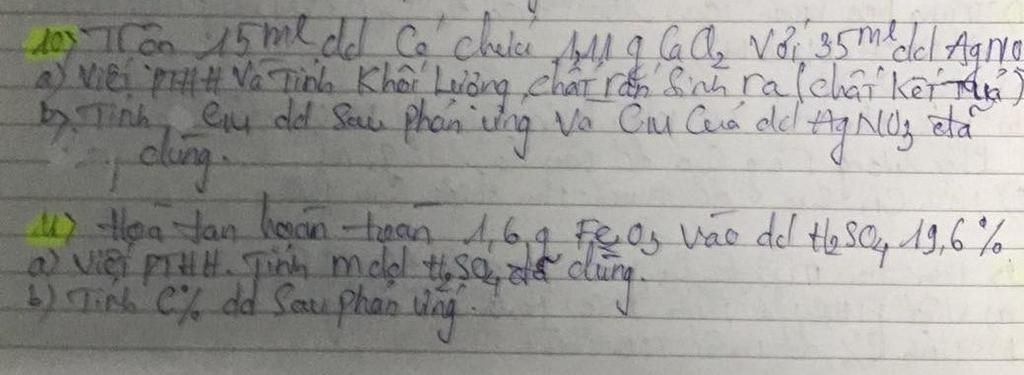 10) Trộn 15ml dd Có chứa 1,11 g CaCl2 Với 35ml dd AgNO
a) Viết PTHH Và Tính Khối Lượng chất rắn Sinh ra (chất Kết Tủa)
b) Tính CM dd Sau phản ứng Và CM Của dd AgNO3 đã
dùng.
11) Hoà tan hoàn toàn 1,6 g Fe2O3 vào dd H2SO4 19,6%
a) Viết PTHH. Tính mdd H2SO4 đã dùng.
b) Tính C% dd Sau phản ứng.